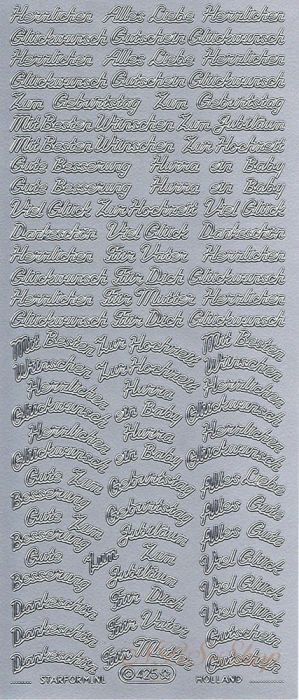 Herrlichen Alles Liebe Herrlichen
Glückwunsch Gutschein Glückwunsch
Herrlichen Alles Liebe Herrlichen
Glückwunsch Gutschein Glückwunsch
Zum Geburtstag Zum Geburtstag
Mit Besten Wünschen Zum Jubiläum
Mit Besten Wünschen Zur Hochzeit
Gute Besserung Hurra ein Baby
Gute Besserung Hurra ein Baby
Viel Glück Zur Hochzeit Viel Glück
Dankeschön Viel Glück Dankeschön
Herrlichen Für Vater Herrlichen
Glückwunsch Für Dich Glückwunsch
Herrlichen Für Mutter Herrlichen
Glückwunsch Für Dich Glückwunsch
Mit Besten Zur Hochzeit Mit Besten
Wünschen Zur Hochzeit Wünschen
Herrlichen Hurra Herrlichen
Glückwunsch ein Baby Glückwunsch
Herrlichen Hurra Herrlichen
Glückwunsch ein Baby Glückwunsch
Gute Zum Alles Liebe
Besserung Geburtstag
Gute Zum Alles Gute
Besserung Geburtstag Alles Gute
Gute Zum Jubiläum Viel Glück
Besserung Zum Jubiläum Viel Glück
Dankeschön Für Dich Gutschein
Dankeschön Für Vater Gutschein
Für Mutter
STARFORM.NL 425 HOLLAND